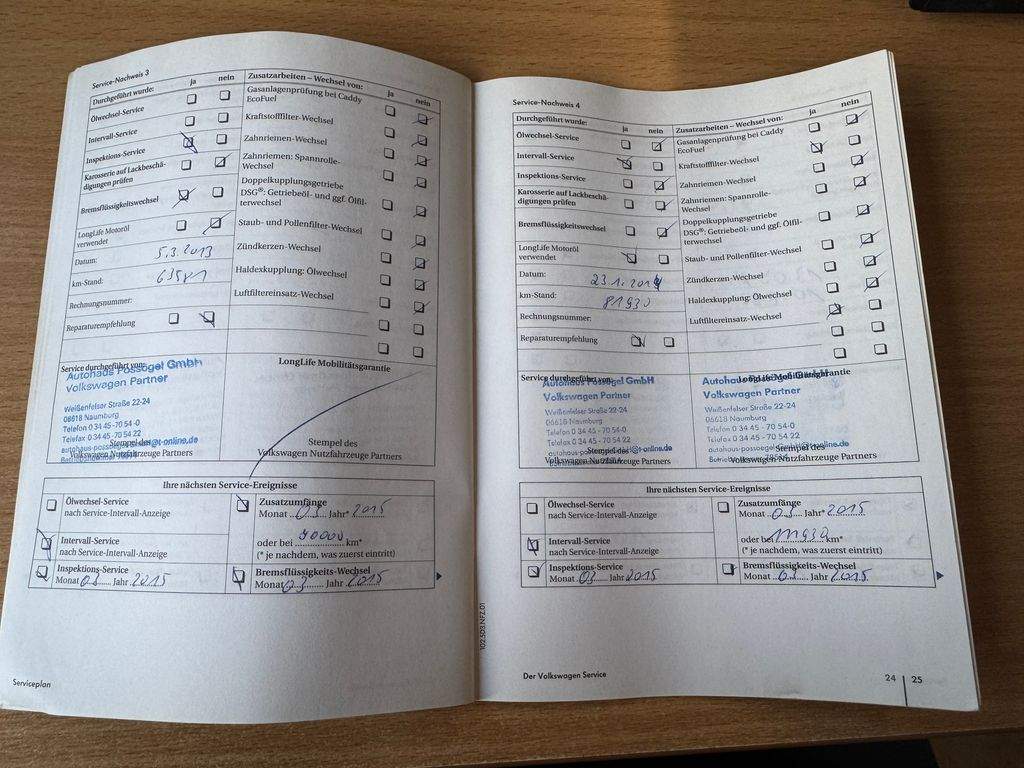 Service-Nachweis 3
Durchgeführt wurde: ja nein
Ölwechsel-Service
Intervall-Service
Inspektions-Service
Karosserie auf Lackbeschä-
digungen prüfen
Bremsflüssigkeitswechsel
LongLife Motoröl
verwendet
Datum: 5.3.2013
km-Stand: 63581
Rechnungsnummer:
Reparaturempfehlung
Zusatzarbeiten – Wechsel von: ja nein
Gasanlagenprüfung bei Caddy
EcoFuel
Kraftstofffilter-Wechsel
Zahnriemen-Wechsel
Zahnriemen: Spannrolle-
Wechsel
Doppelkupplungsgetriebe
DSG®: Getriebeöl- und ggf. Ölfil-
terwechsel
Staub- und Pollenfilter-Wechsel
Zündkerzen-Wechsel
Haldexkupplung: Ölwechsel
Luftfiltereinsatz-Wechsel
Service durchgeführt von:
Autohaus Possögel GmbH
Volkswagen Partner
Weißenfelser Straße 22-24
06618 Naumburg
Telefon 0 34 45 - 70 54-0
Telefax 0 34 45 - 70 54 22
Stempel des
Volkswagen Nutzfahrzeuge Partners
LongLife Mobilitätsgarantie
Stempel des
Volkswagen Nutzfahrzeuge Partners
Ihre nächsten Service-Ereignisse
Ölwechsel-Service
nach Service-Intervall-Anzeige
Zusatzumfänge
Monat 03 Jahr* 2015
oder bei 90000 km*
(* je nachdem, was zuerst eintritt)
Intervall-Service
nach Service-Intervall-Anzeige
Inspektions-Service
Monat 03 Jahr 2015
Bremsflüssigkeits-Wechsel
Monat 03 Jahr 2015
Serviceplan
102.5D3.NFZ.01
Service-Nachweis 4
Durchgeführt wurde: ja nein
Ölwechsel-Service
Intervall-Service
Inspektions-Service
Karosserie auf Lackbeschä-
digungen prüfen
Bremsflüssigkeitswechsel
LongLife Motoröl
verwendet
Datum: 23.1.2014
km-Stand: 81930
Rechnungsnummer:
Reparaturempfehlung
Zusatzarbeiten – Wechsel von: ja nein
Gasanlagenprüfung bei Caddy
EcoFuel
Kraftstofffilter-Wechsel
Zahnriemen-Wechsel
Zahnriemen: Spannrolle-
Wechsel
Doppelkupplungsgetriebe
DSG®: Getriebeöl- und ggf. Ölfil-
terwechsel
Staub- und Pollenfilter-Wechsel
Zündkerzen-Wechsel
Haldexkupplung: Ölwechsel
Luftfiltereinsatz-Wechsel
Service durchgeführt von:
Autohaus Possögel GmbH
Volkswagen Partner
Weißenfelser Straße 22-24
06618 Naumburg
Telefon 0 34 45 - 70 54-0
Telefax 0 34 45 - 70 54 22
Stempel des
Volkswagen Nutzfahrzeuge Partners
LongLife Mobilitätsgarantie
Autohaus
Volkswagen Partner
Weißenfelser Straße 22-24
06618 Naumburg
Telefon 0 34 45 - 70 54-0
Telefax 0 34 45 - 70 54 22
Stempel des
Volkswagen Nutzfahrzeuge Partners
Ihre nächsten Service-Ereignisse
Ölwechsel-Service
nach Service-Intervall-Anzeige
Zusatzumfänge
Monat 03 Jahr* 2015
oder bei 111930 km*
(* je nachdem, was zuerst eintritt)
Intervall-Service
nach Service-Intervall-Anzeige
Inspektions-Service
Monat 03 Jahr 2015
Bremsflüssigkeits-Wechsel
Monat 03 Jahr 2015
Der Volkswagen Service
24 25